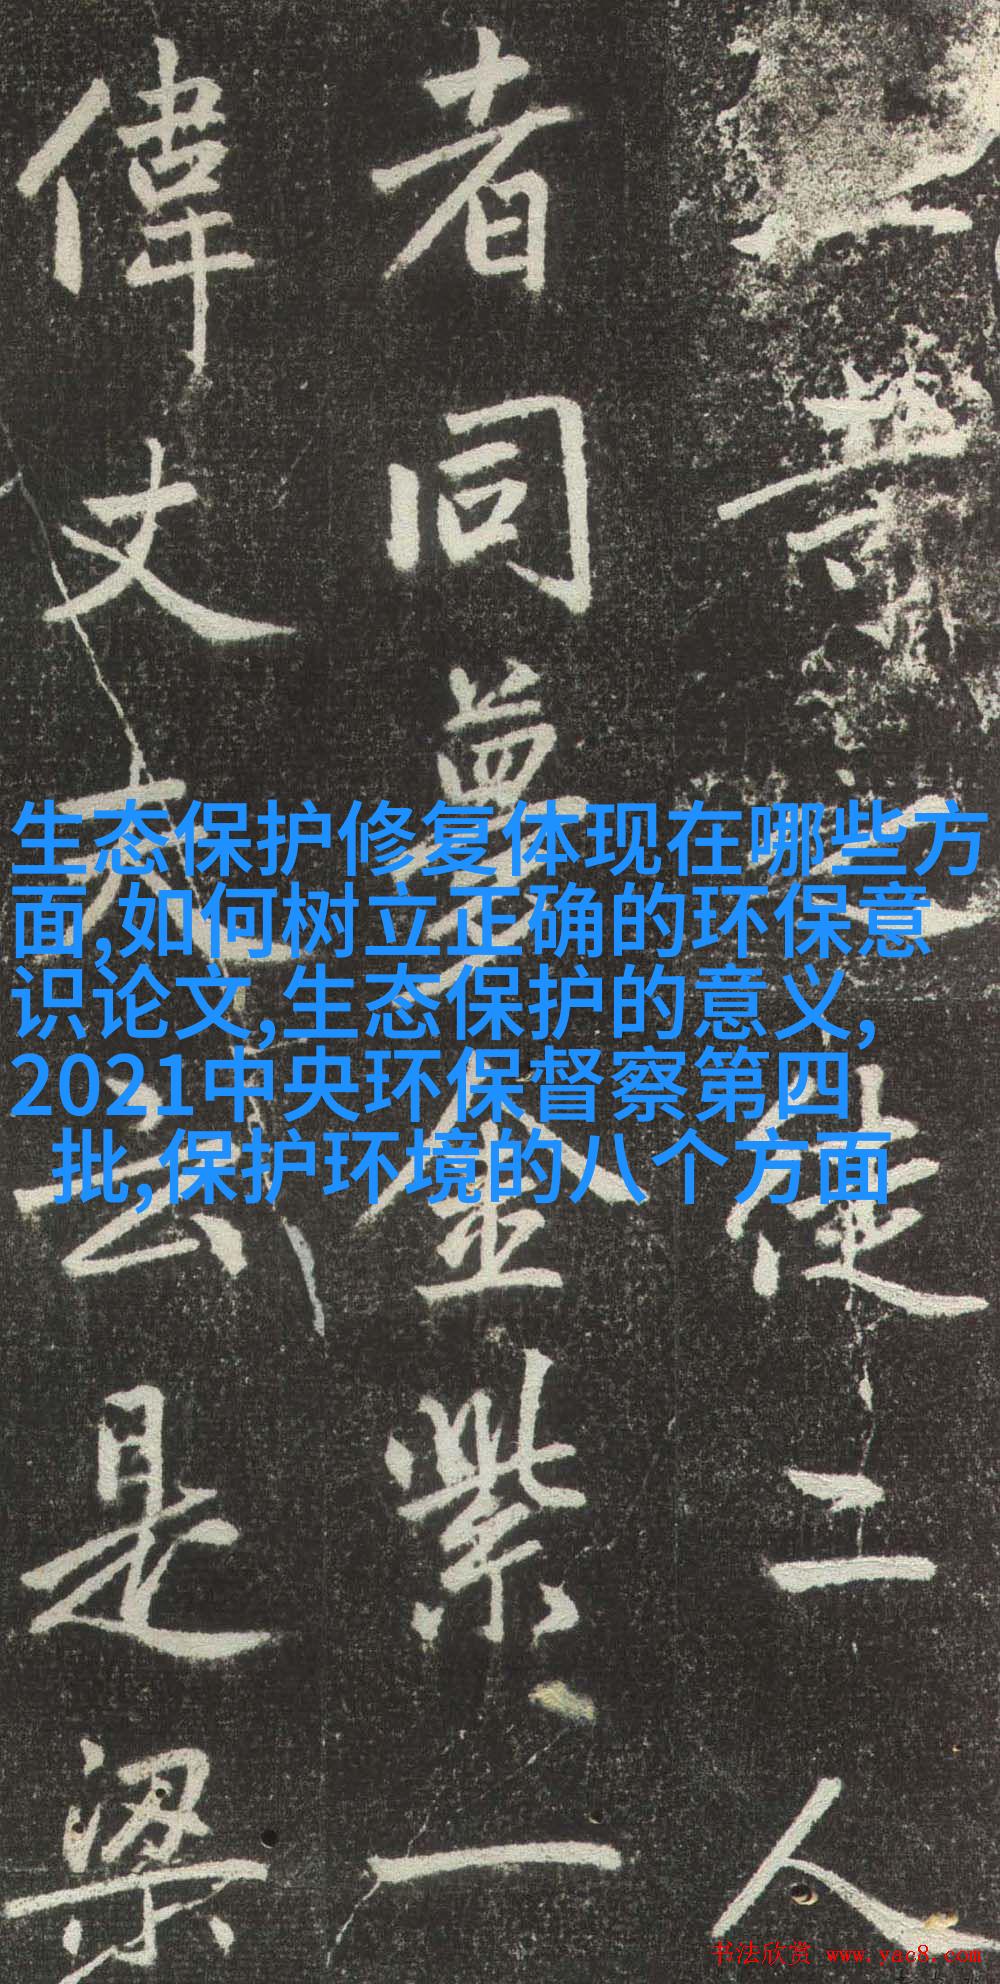 業之徒二人
者同夢金紫一
偉丈夫云是梁
生态保护修复体现在哪些方
面,如何树立正确的环保意
识论文,生态保护的意义,
2021中央环保督察第四
批,保护环境的八个方面
书法欣赏 www.yac8.com